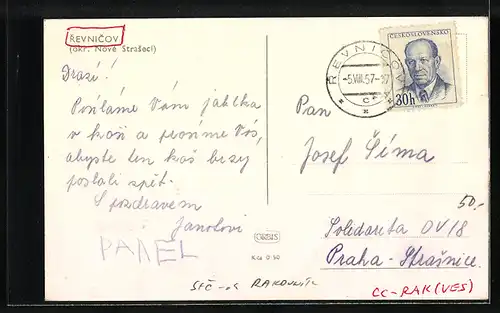 ŘEVNIČOV
(okr. Nové Strašecí)
Drazí!
Posíláme Vám jablka
v koši a prosíme Vás,
abyste ten koš brzy
poslali zpět.
S pozdravem
Janotovi
PAVEL
ČESKOSLOVENSKO
30h
ŘEVNIČOV
-5.VIII.57-17
Pan
Josef Šíma
Solidarita OV18
Praha-Strašnice.
50,-
ORBIS
Kčs 0·50
SFČ-OK RAKOVNÍK
CC-RAK(VES)